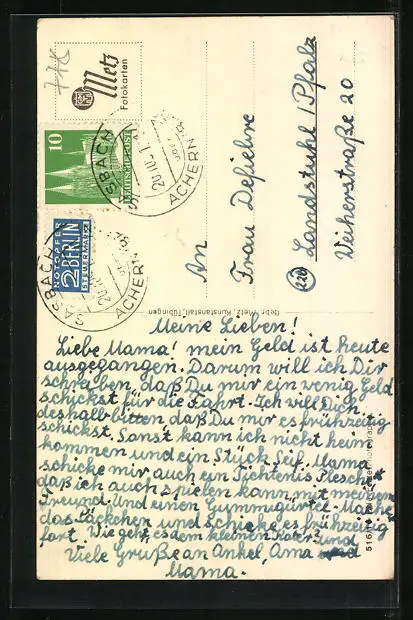 Metz
Fotokarten
10
DEUTSCHE POST
SASBACH
ACHERN
NOTOPFER
2 BERLIN
STEUERMARKE
SASBACH
ACHERN
An
Frau Defiehre
(22b) Landstuhl / Pfalz
Weiherstraße 20
Gebr. Metz, Kunstanstalt, Tübingen
Meine Lieben!
Liebe Mama! mein Geld ist heute
ausgegangen. Darum will ich Dir
schreiben, daß Du mir ein wenig Geld
schickst für die Fahrt. Ich will Dich
deshalb bitten daß Du mir es frühzeitig
schickst. Sonst kann ich nicht heim
kommen und ein Stück Seif. Mama
schicke mir auch ein Tichtenis Plesch
daß ich auch spielen kann mit meinem
Freund. Und einen Gummigürtel. Mache
das Päckchen und schicke es frühzeitig
fort. Wie geht es dem kleinen Kater und
Viele Grüße an Onkel, Oma und
Mama.